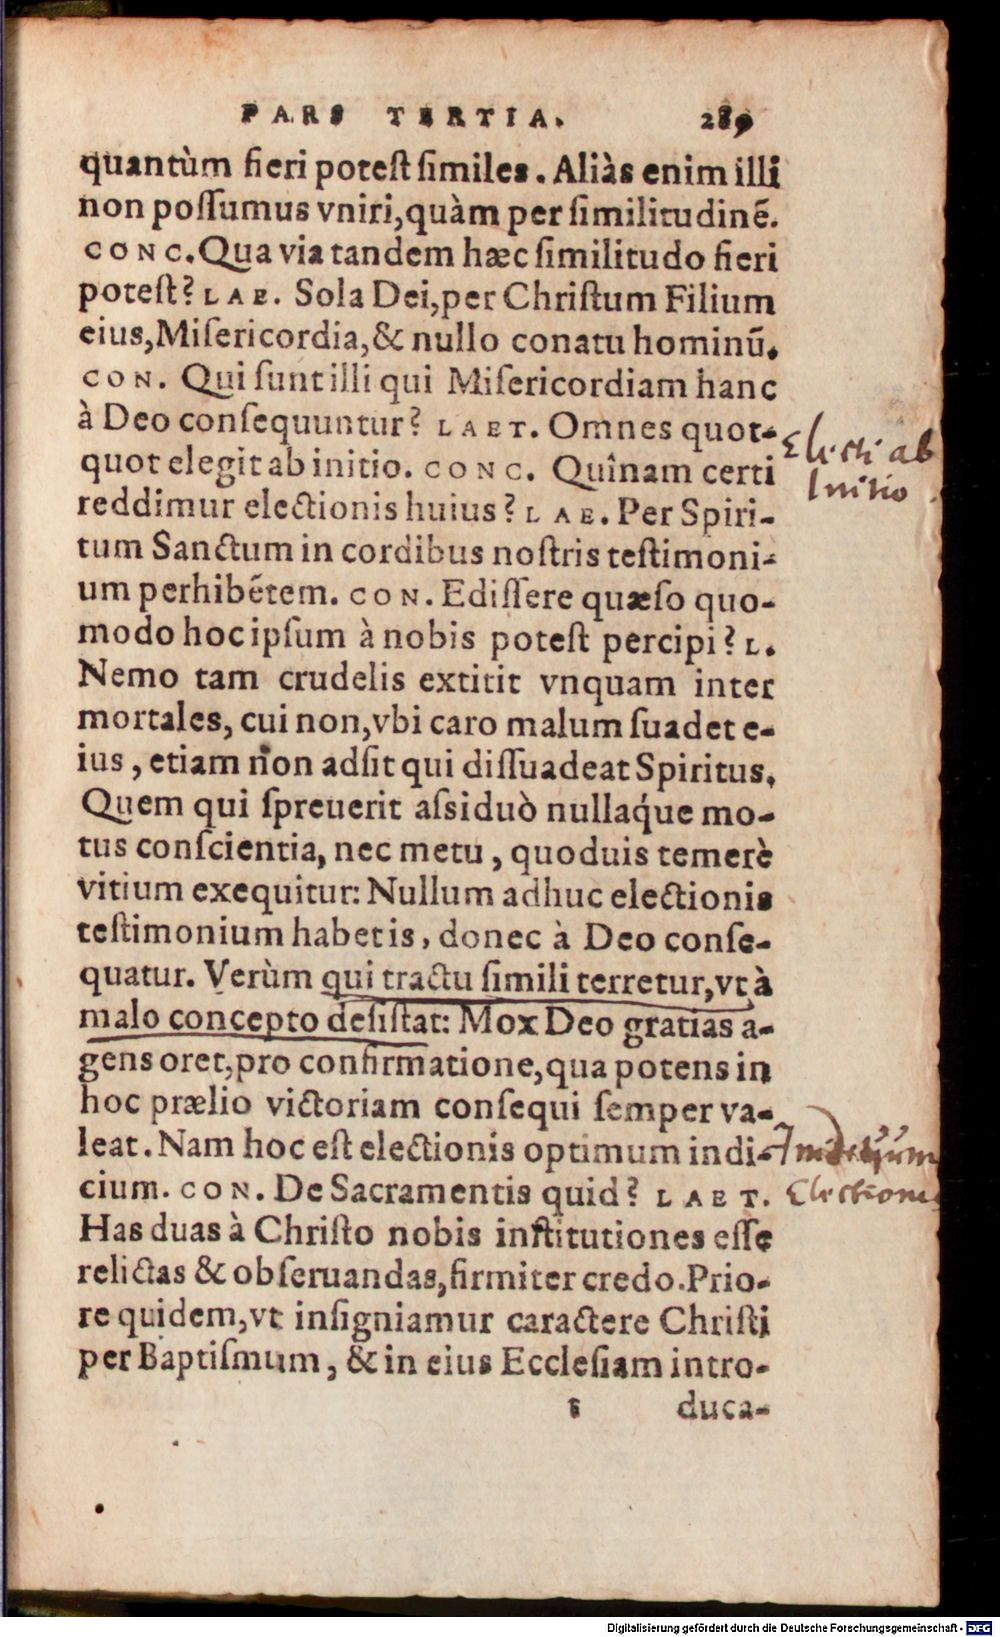 PARS TERTIA. 289
quantùm fieri poteſt ſimiles. Aliàs enim illi
non poſſumus vniri, quàm per ſimilitudinẽ.
CONC. Qua via tandem hæc ſimilitudo fieri
poteſt? LAE. Sola Dei, per Chriſtum Filium
eius, Miſericordia, & nullo conatu hominũ.
CON. Qui ſunt illi qui Miſericordiam hanc
à Deo conſequuntur? LAET. Omnes quot-
quot elegit ab initio. CONC. Quînam certi
Electi ab
Initio
reddimur electionis huius? LAE. Per Spiri-
tum Sanctum in cordibus noſtris teſtimoni-
um perhibẽtem. CON. Ediſſere quæſo quo-
modo hoc ipſum à nobis poteſt percipi? L.
Nemo tam crudelis extitit vnquam inter
mortales, cui non, vbi caro malum ſuadet e-
ius, etiam non adſit qui diſſuadeat Spiritus.
Quem qui ſpreuerit aſsiduò nullaq́ue mo-
tus conſcientia, nec metu, quoduis temerè
vitium exequitur: Nullum adhuc electionis
teſtimonium habetis, donec à Deo conſe-
quatur. Verùm qui tractu ſimili terretur, vt à
malo concepto deſiſtat: Mox Deo gratias a-
gens oret, pro confirmatione, qua potens in
hoc prælio victoriam conſequi ſemper va-
leat. Nam hoc eſt electionis optimum indi-
Inditium
Electionis
cium. CON. De Sacramentis quid? LAET.
Has duas à Chriſto nobis inſtitutiones eſſe
relictas & obſeruandas, firmiter credo. Prio-
re quidem, vt inſigniamur caractere Chriſti
per Baptiſmum, & in eius Eccleſiam intro-
duca-
Digitalisierung gefördert durch die Deutsche Forschungsgemeinschaft - DFG